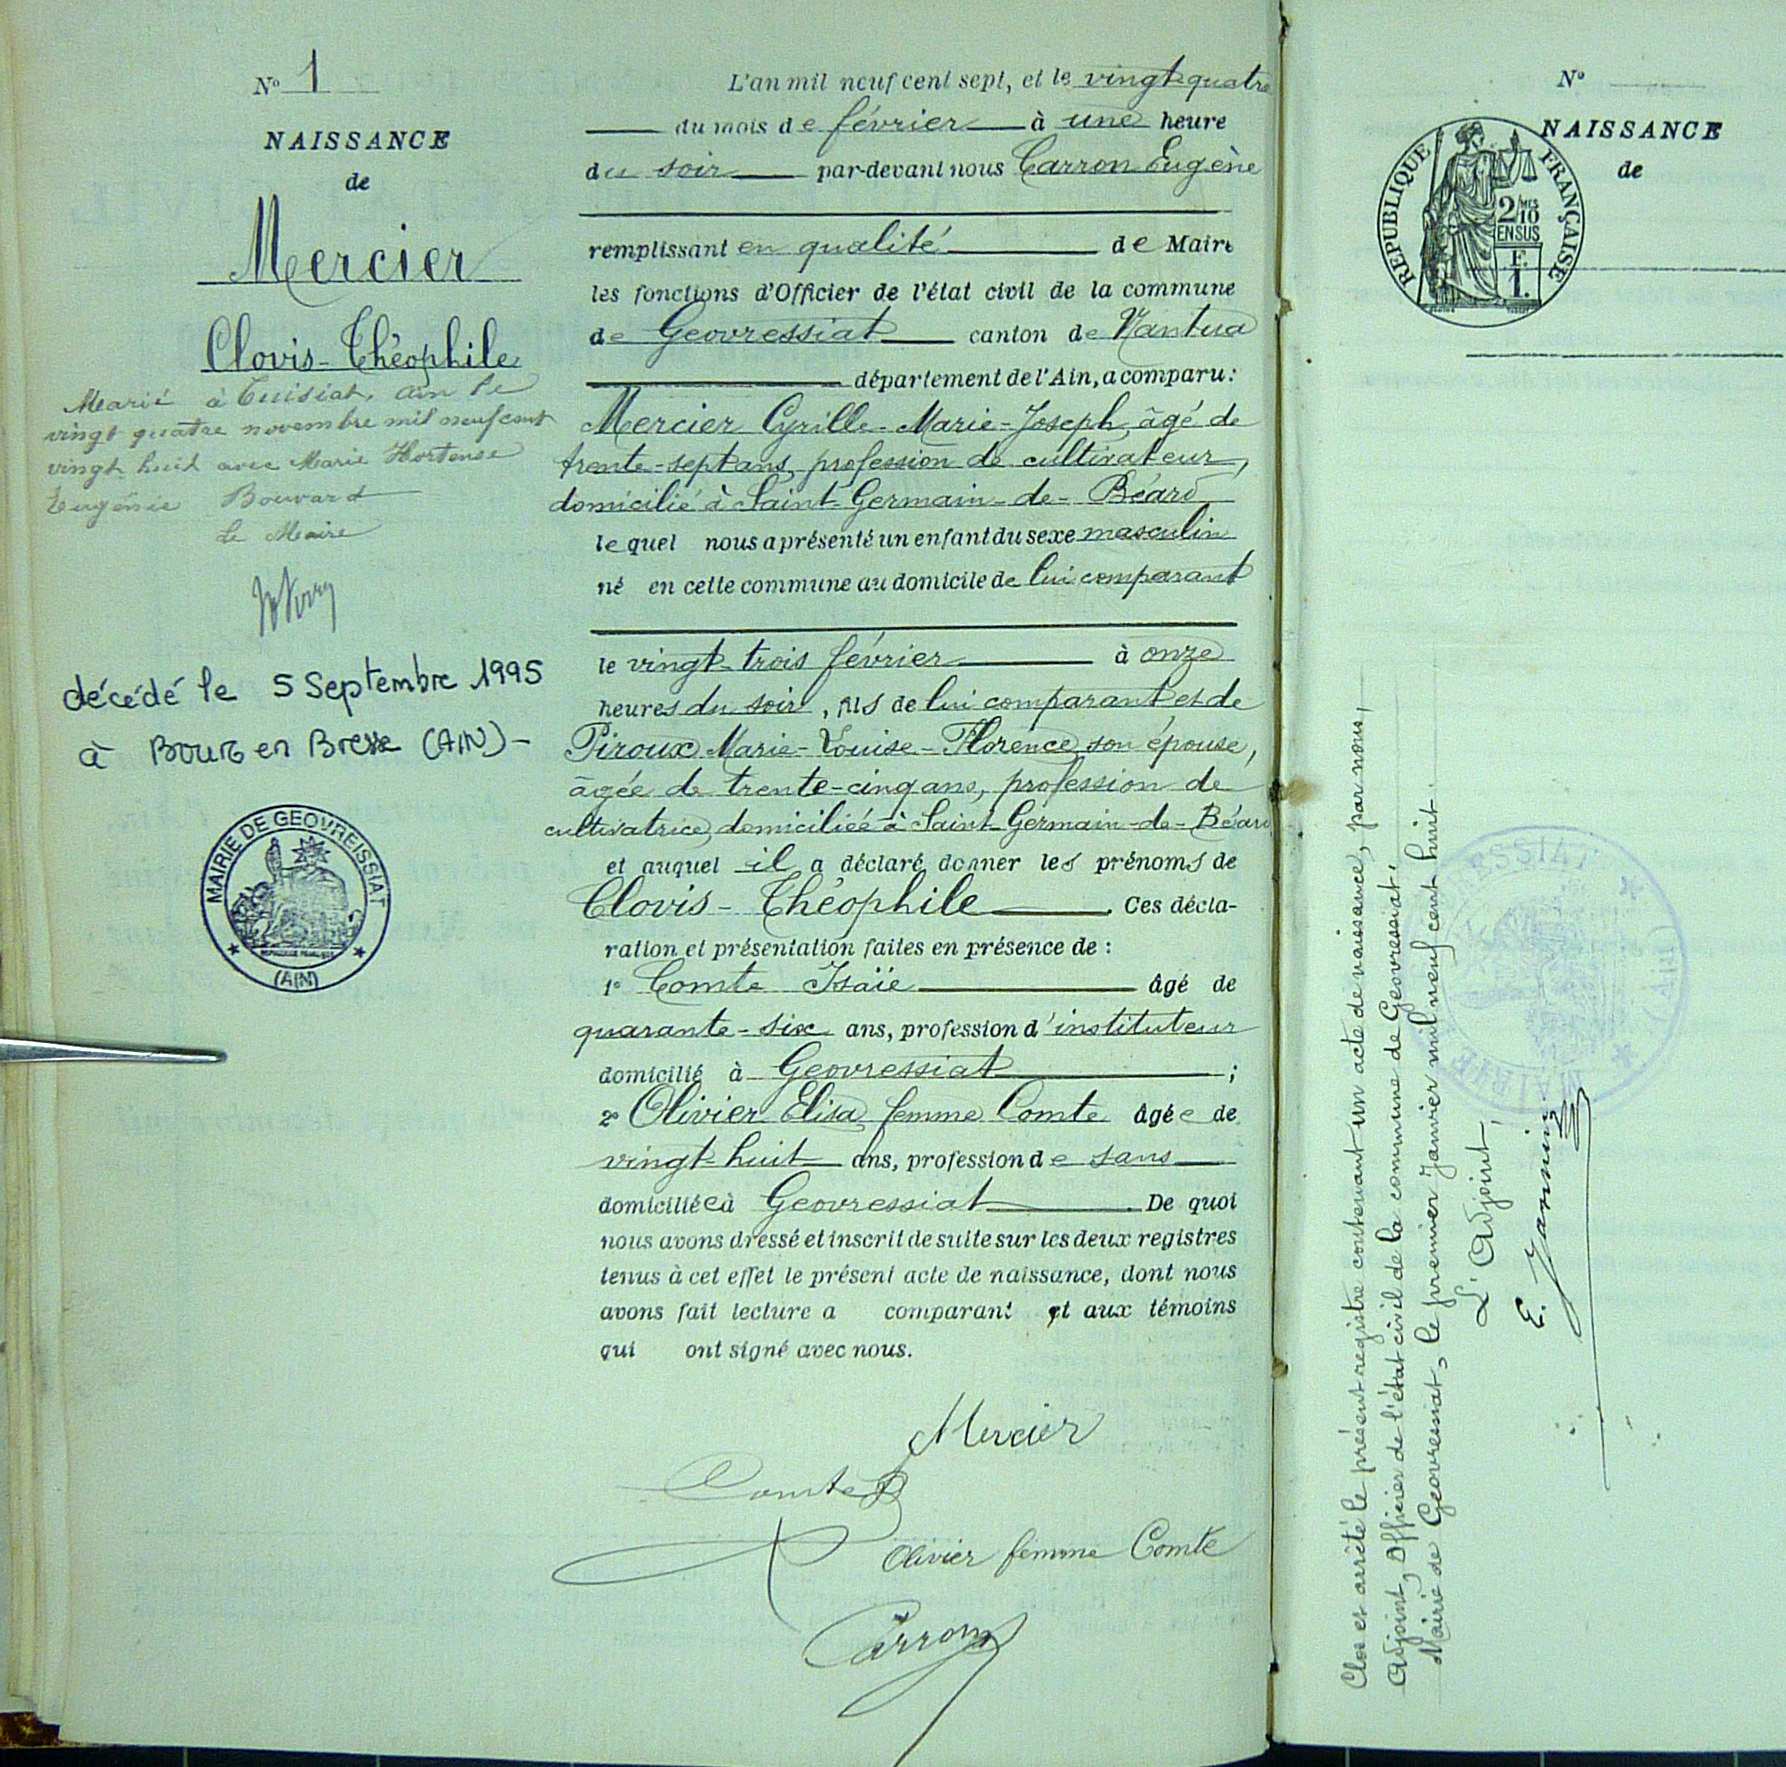 N° 1
NAISSANCE
de
Mercier
Clovis-Théophile
Marié à Cuisiat, Ain le
vingt quatre novembre mil neuf cent
vingt huit avec Marie Hortense
Eugénie Bouvard
Le Maire
décédé le 5 Septembre 1995
à Bourg en Bresse (AIN) -
MAIRIE DE GEOVREISSIAT
REPUBLIQUE FRANÇAISE
(AIN)
L'an mil neuf cent sept, et le vingt-quatre
du mois de février à une heure
du soir par-devant nous Carron Eugène
remplissant en qualité de Maire
les fonctions d'Officier de l'état civil de la commune
de Geovressiat canton de Nantua
département de l'Ain, a comparu :
Mercier Cyrille-Marie-Joseph, âgé de
trente-sept ans, profession de cultivateur,
domicilié à Saint-Germain-de-Béard
lequel nous a présenté un enfant du sexe masculin
né en cette commune au domicile de lui comparant
le vingt-trois février à onze
heures du soir, fils de lui comparant et de
Piroux Marie-Louise-Florence, son épouse,
âgée de trente-cinq ans, profession de
cultivatrice, domiciliée à Saint-Germain-de-Béard
et auquel il a déclaré donner les prénoms de
Clovis-Théophile. Ces décla-
ration et présentation faites en présence de :
1° Comte Isaïe âgé de
quarante-six ans, profession d'instituteur
domicilié à Geovressiat ;
2° Olivier Elisa, femme Comte âgée de
vingt-huit ans, profession de sans
domiciliée à Geovressiat. De quoi
nous avons dressé et inscrit de suite sur les deux registres
tenus à cet effet le présent acte de naissance, dont nous
avons fait lecture a comparant et aux témoins
qui ont signé avec nous.
Mercier
Comte
Olivier femme Comte
Carron
N°
NAISSANCE
de
REPUBLIQUE FRANÇAISE
2/10
EN SUS
F.
1.
Clos et arrêté le présent registre contenant un acte de naissance, par nous,
Adjoint, Officier de l'état civil de la commune de Geovressiat.
Mairie de Geovressiat, le premier Janvier mil neuf cent huit.
L'Adjoint,
E. Jannin